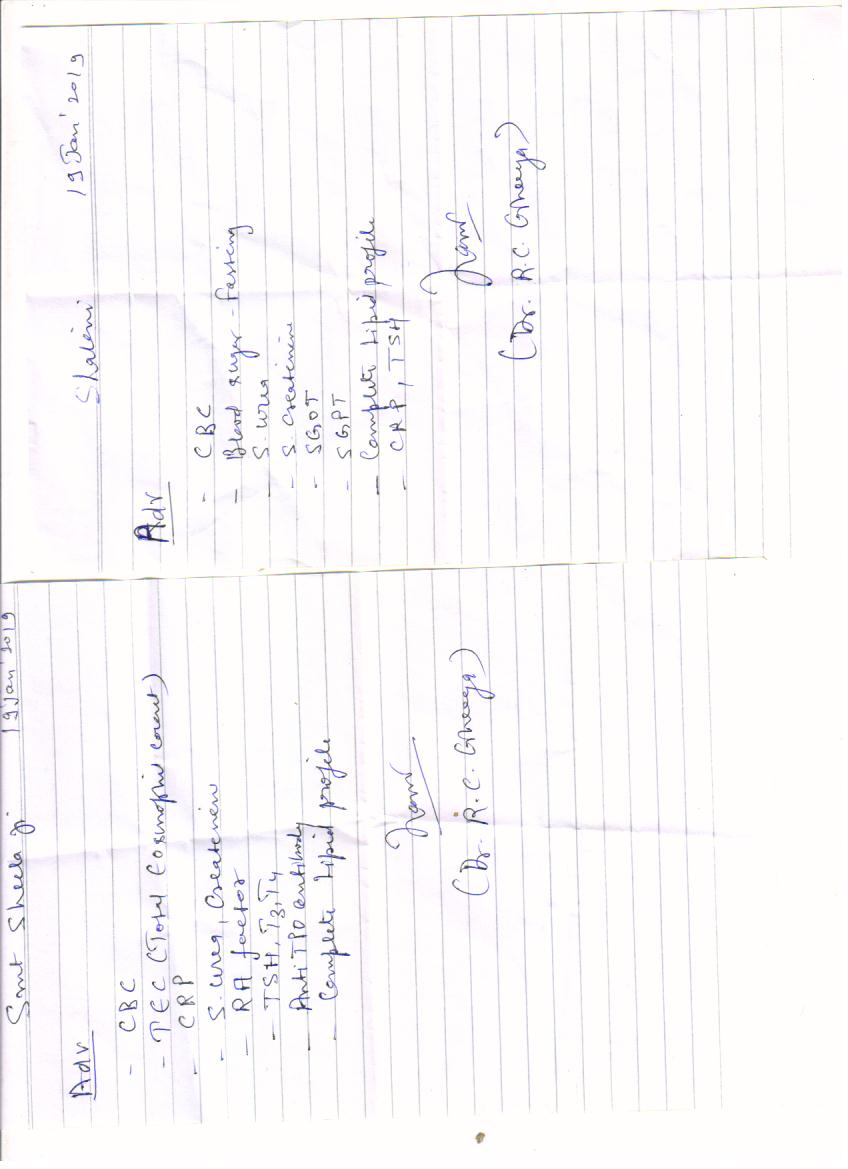 Smt Sheela Ji 19 Jan' 2019
Adv
- CBC
- TEC (Total Eosinophil count)
- CRP
- S. Urea, Creatinine
- RA factor
- TSH, T3, T4
- Anti TPO antibody
- Complete Lipid profile
(Dr. R.C. Gheeya)
Shalini 19 Jan' 2019
Adv
- CBC
- Blood sugar - Fasting
- S. Urea
- S. Creatinine
- SGOT
- SGPT
- Complete Lipid profile
- CRP, TSH
(Dr. R.C. Gheeya)